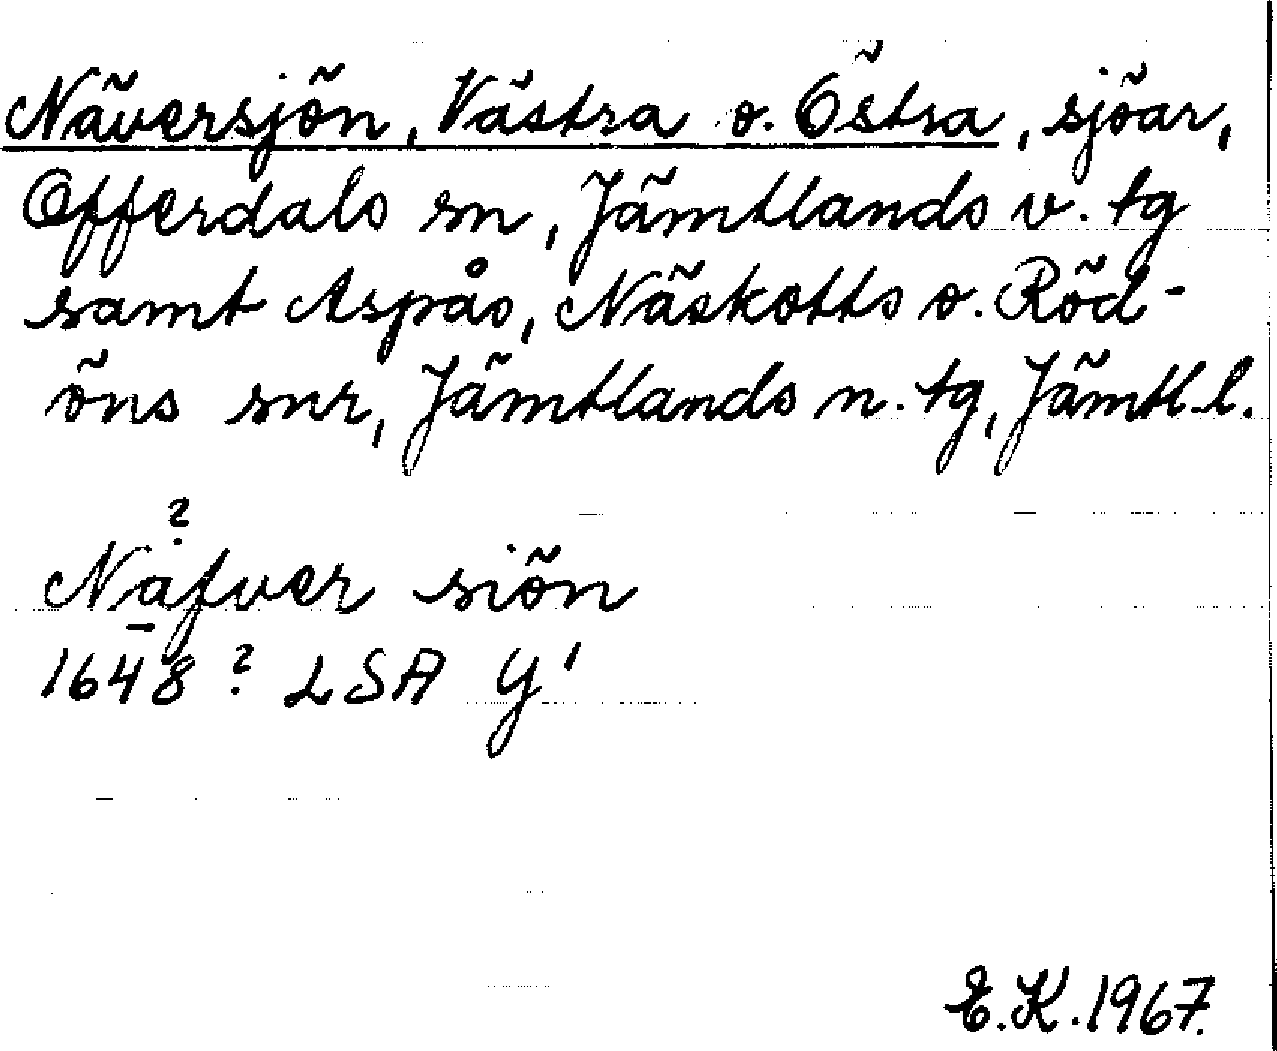 Näversjön, Västra o. Östra, sjöar,
Offerdals sn, Jämtlands v. tg
samt Aspås, Näskotts o. Röd-
öns snr, Jämtlands n. tg, Jämtl. l.
?
Nafver siön
1648? LSA Y'
E.K. 1967.